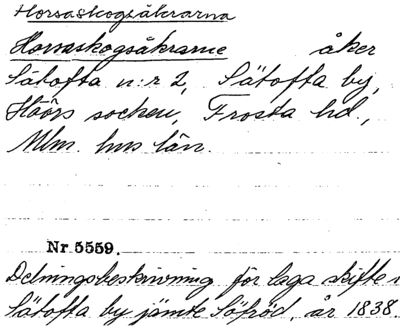 Horsaskogsåkrarna
Horsaskogsåkrarne åker
Sätofta n:r 2, Sätofta by,
Höörs socken, Frosta hd.,
Mlm. hus län.
Nr. 5559.
Delningsbeskrivning för laga skifte i
Sätofta by jämte Söfröd, år 1838.